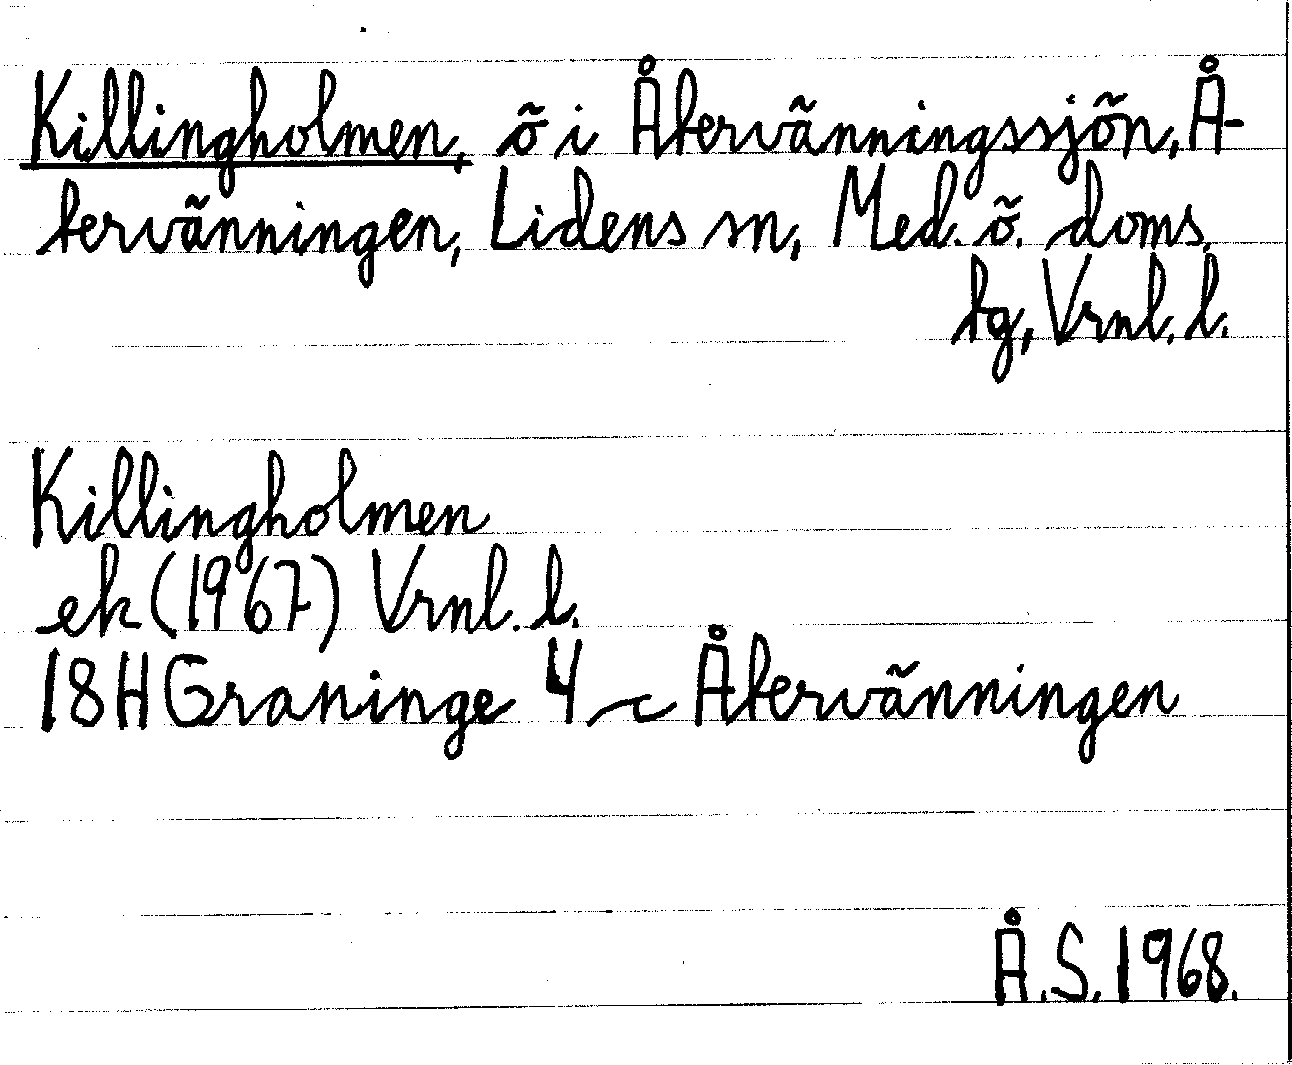 Killingholmen, ö i Återvänningssjön, Å-
tervänningen, Lidens sn, Med. ö. doms.
tg, Vrnl. l.
Killingholmen
ek (1967) Vrnl. l.
18H Graninge 4 c Återvänningen
Å.S. 1968.